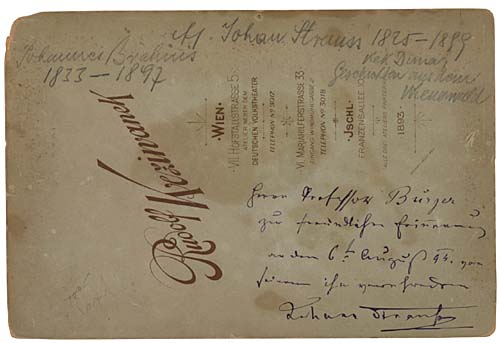 Johan Strauss 1825-1899
Johannes Brahms
1833-1897
Geschichten aus dem
Wienerwald
Rudolf Krziwanek
WIEN
VII. HOFSTALLSTRASSE 5.
ATELIER NEBEN DEM
DEUTSCHEN VOLKSTHEATER
TELEPHON No 9012.
VI. MARIAHILFERSTRASSE 33
EINGANG WINDMÜHLGASSE 2
TELEPHON No 3018.
ISCHL
FRANZENSALLEE
ALLE DREI ATELIERS PARTERRE
1893
Herrn Professor Bürger
zur freundlichen Erinnerung
an den 6t August 94. von
seinem ihn verehrenden
Johann Strauss